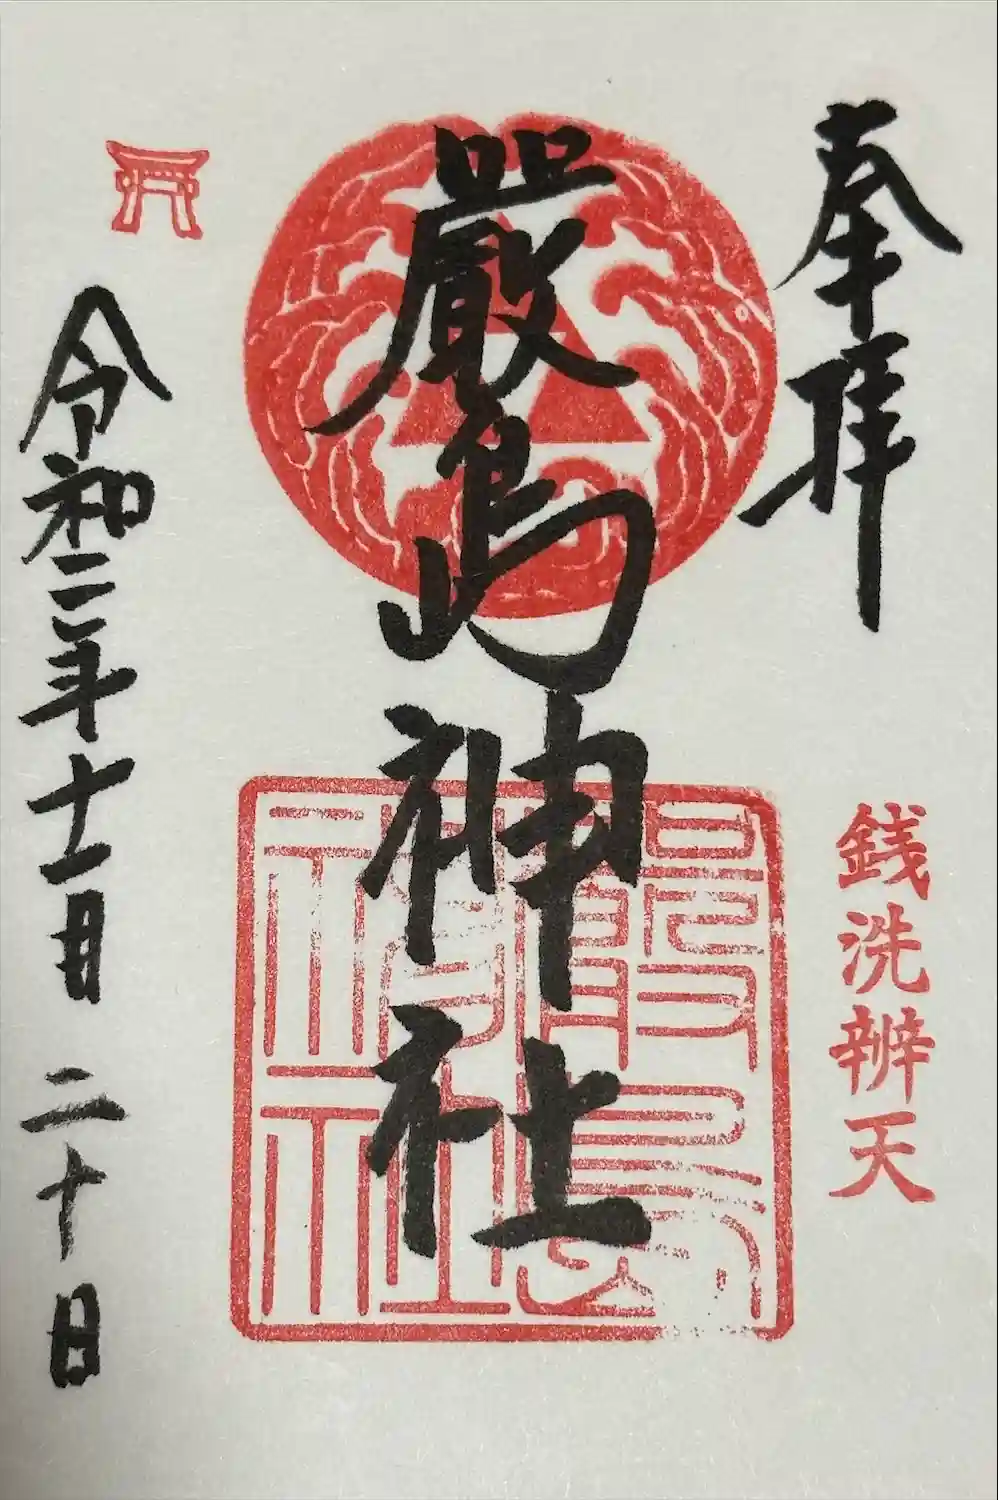 奉拝
銭洗辨天
嚴嶋神社
嚴島神社
令和三年十一月二十日